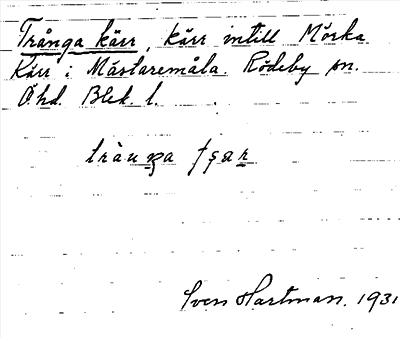 Trånga kärr, kärr intill Mörka
Kärr i Mästaremåla. Rödeby sn.
Ö hd. Blek. l.
tràuŋa
Sven Hartman. 1931